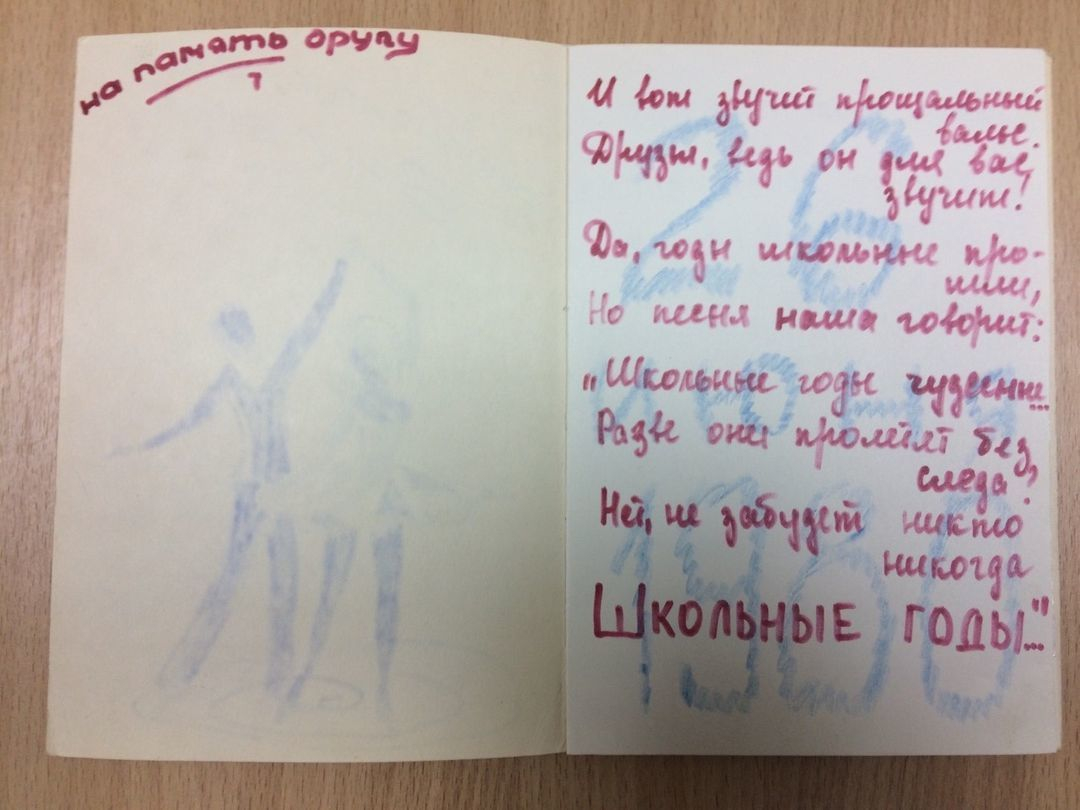 на память другу
И вот звучит прощальный
вальс.
Друзья, ведь он для вас,
звучит!
Да, годы школьные про-
шли,
Но песня наша говорит:
„Школьные годы чудесные...
Разве они пролетят без
следа?
Нет, не забудет никто
никогда
ШКОЛЬНЫЕ ГОДЫ..."
26
июня
1980